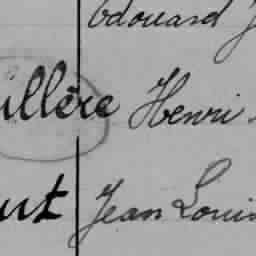 Edouard J
illère Henri
ut Jean Louis